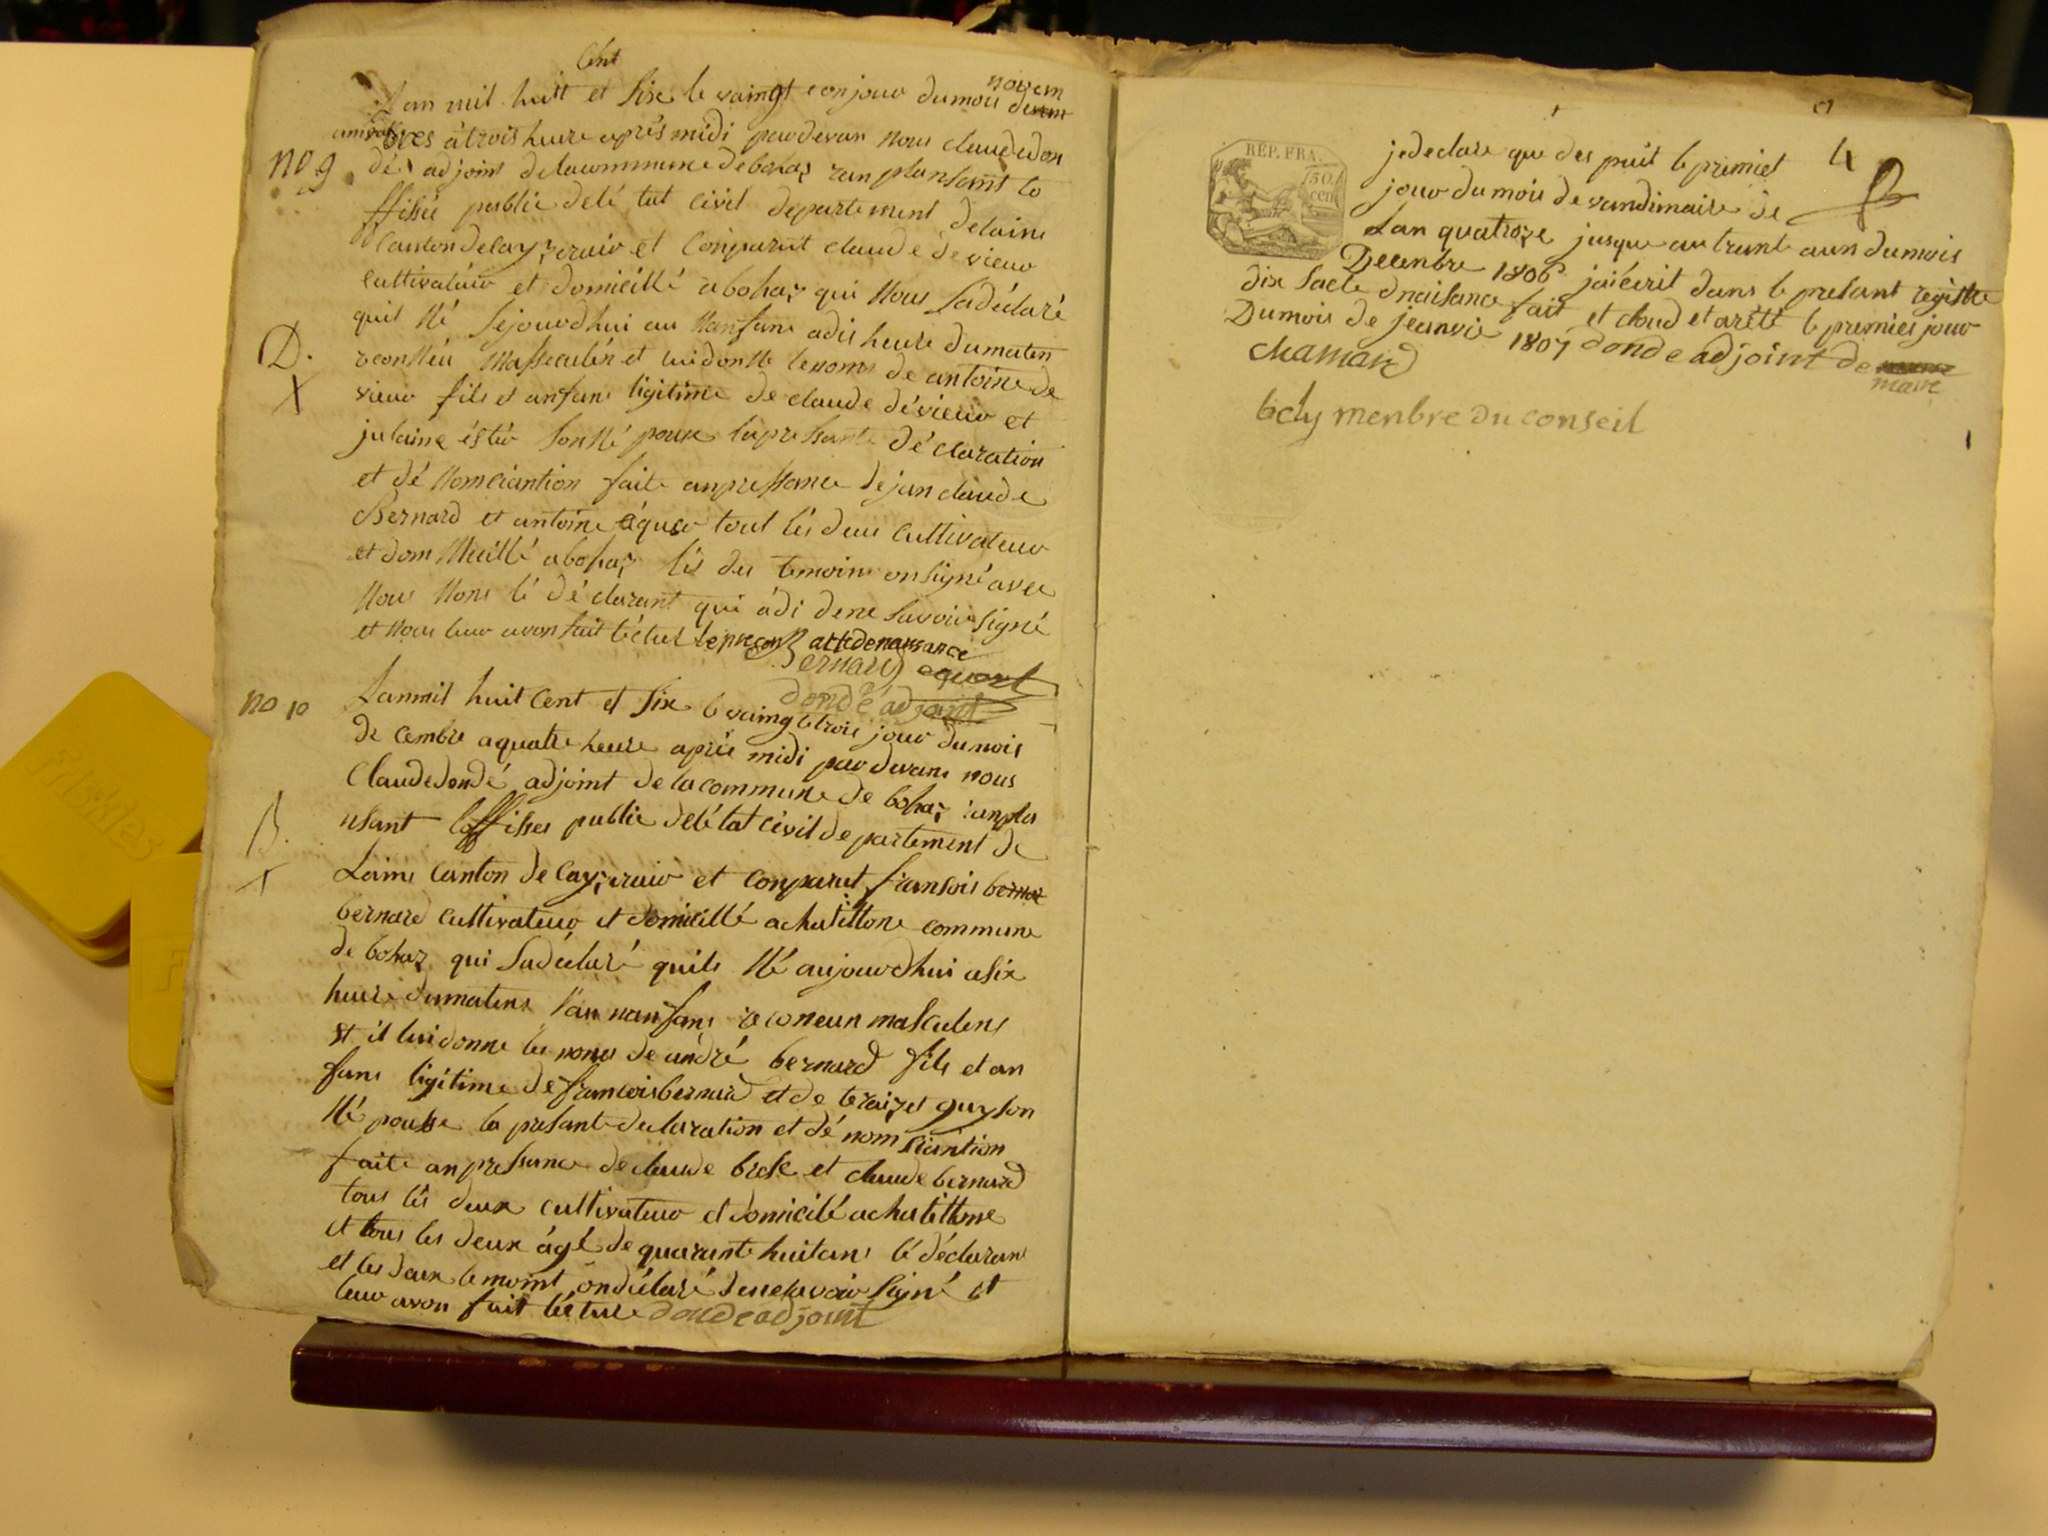 Cent
Lan mil huit et Six le vaingt eonjour dumois denm
novem
bres àtrois heure après midi pardevan Nous claudedon
no 9 dé adjoint delacommune debohaz ranplansant lo
ffisié public delé tat civil departement delain
Canton deCayzeraio et Conparut claude devieux
cultivateuo et domicillé abohaz qui Nous Sadéclaré
quil Né Sejourdhui au Nanfans adis heure dumaten
D. reconNeu Masseculin et luidonne lenoms de antoine de
X vieuo fils et anfans ligitime de claude dévieuo et
julaine
Sonsé poure lapressante déclaration
et dé Nomciantion faite anpressance dejan claude
Bernard et antoine équeo tout lés deux Cultivateuo
et domMicillé abohaz lés deu temoins onsigné avec
Nous Nons lé déclarant qui adi dene Savoir signé
et Nous leuo avon fait lécture lepresent actedenaissance
Bernard equort
dondé adjoint
no 10 Lanmil huit Cent et Six le vaingtetrois jour dumois
de Cembre aquatre heure après midi par devans nous
Claudedondé adjoint de lacommune de bohaz ranpla
nsant loffisser public delétat civil departement de
B. Lains Canton de Cayzeraio et Conparut fransois bernar
bernard cultivateuo et domicillé achatillone commune
de bohaz qui Sadéclaré quils Né aujourdhui asix
heure dumatens Cau nanfans reconeun masculens
et il luidonne les noms de andré bernard fils et an
fans ligitime de francoisbernard et de teraizes guyson
Né pouse la presante declaration et dé nomsiantion
faite anpressance declaude brese et claude bernard
tous lés deux cultivateuo et domicilé achatillone
et tous les deux âgé de quarante huitans lé déclarans
et les deux temoint ondéclaré denesavoir signé et
leuo avon fait lécture dondeadjoint
REP. FRA.
50.
cent
4
jedeclare que des puis le premier
jour du mois de vandimaire de
Lan quatroze jusque au trante aun dumois
Decenbre 1806 jaiécrit dans le presant registre
dix Sacte dnaisance fait et cloud et arété le premier jour
Dumois de jeanvié 1807 donde adjoint de
maire
chamard
bely menbre du conseil
Friskies